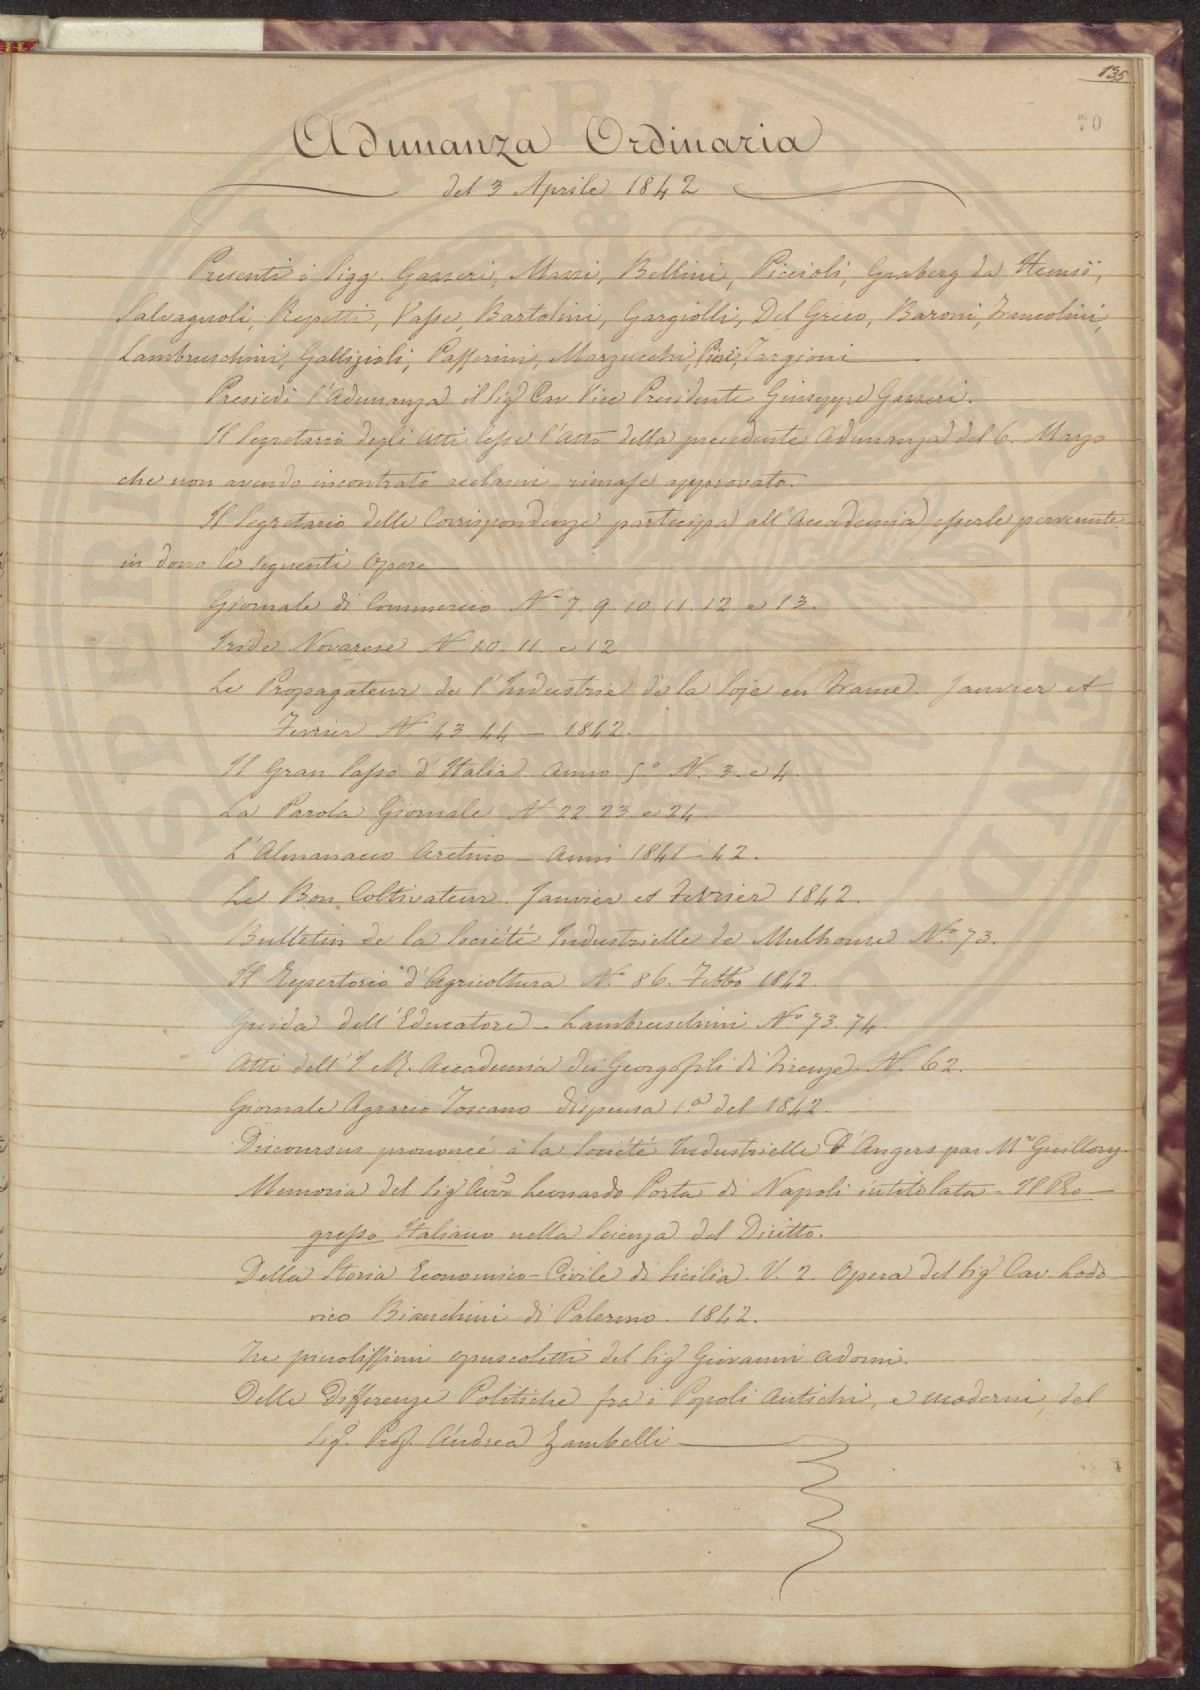 135
70
Adunanza Ordinaria
del 3 Aprile 1842
Presenti i Sigg. Gazzeri, Mazzi, Bellini, Piccioli, Graberg da Hemsö,
Salvagnoli, Repetti, Vasse, Bartolini, Gargiolli, Del Greco, Baroni, Francolini,
Lambruschini, Gallizioli, Passerini, Marzucchi, Pini, Targioni
Presiedè l'Adunanza il Sigr Cav. Vice Presidente Giuseppe Gazzeri.
Il Segretario degli Atti lesse l'Atto della precedente Adunanza del 6. Marzo
che non avendo incontrato reclami rimase approvato.
Il Segretario delle Corrispondenze partecipa all'Accademia esserle pervenute
in dono le seguenti Opere
Giornale di Commercio No 7. 9. 10. 11. 12. e 13.
Iride Novarese No 10. 11. e 12
Le Propagateur de l'Industrie de la Soje en France. Janvier et
Fevrier No 43 44 - 1842.
Il Gran Sasso d'Italia Anno 5.o N. 3. e 4.
La Parola Giornale No 22. 23. e 24.
L'Almanacco Aretino - Anni 1841-42.
Le Bon Coltivateur. Janvier et Fevrier 1842.
Bulletin de la Société Industrielle de Mulhouse No. 73.
Il Repertorio d'Agricoltura No. 86. Febbo 1842.
Guida dell'Educatore - Lambruschini No 73. 74.
Atti dell'I e R. Accademia dei Georgofili di Firenze. N. 62.
Giornale Agrario Toscano dispensa 1a del 1842.
Discoursus prononcé à la Société Industrielle d'Angers par Mr Guillory.
Memoria del Sigr Avvo Leonardo Porta di Napoli intitolata - Il Pro-
gresso Italiano nella Scienza del Diritto.
Della Storia Economico-Civile di Sicilia. V. 2. Opera del Sigr Cav. Lodo-
vico Bianchini di Palermo. 1842.
Tre piccolissimi opuscoletti del Sigr Giovanni Adorni.
Delle Differenze Politiche fra i Popoli Antichi, e moderni, del
Sigr. Prof. Andrea Zambelli